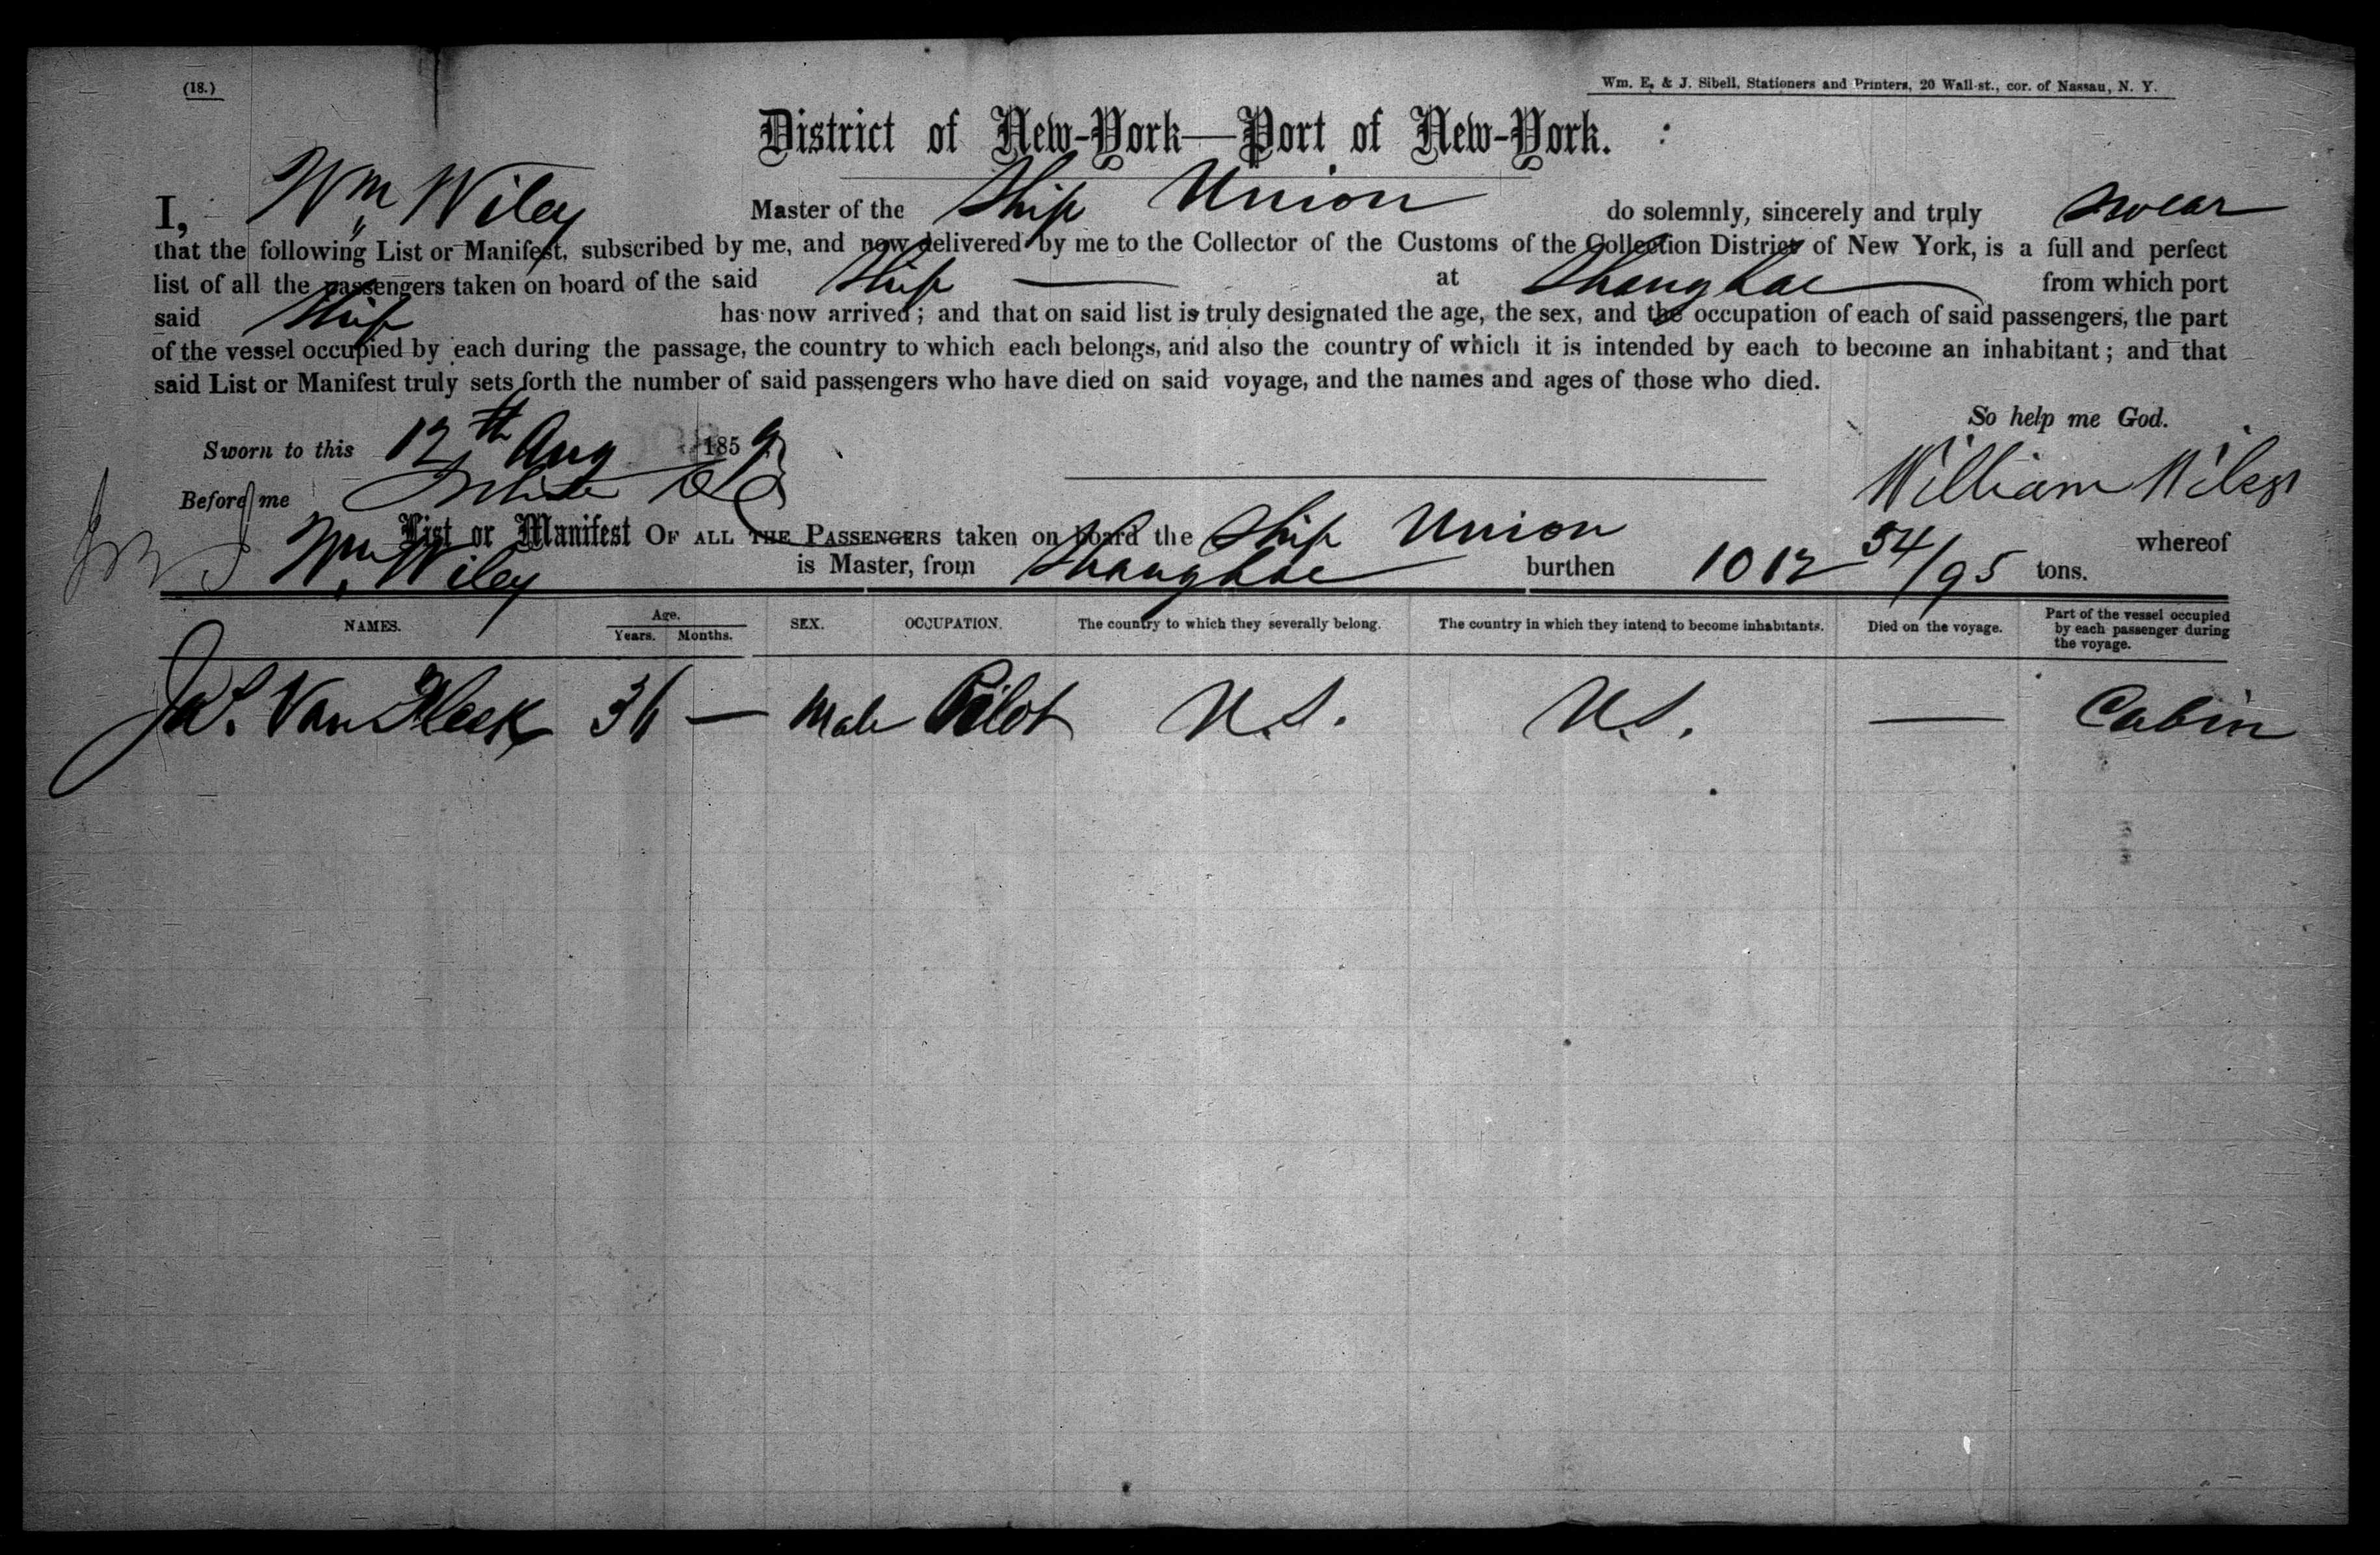 (18.)
Wm. E. & J. Sibell, Stationers and Printers, 20 Wall-st., cor. of Nassau, N. Y.
District of New-York—Port of New-York.
I, Wm Wiley Master of the Ship Union do solemnly, sincerely and truly swear
that the following List or Manifest, subscribed by me, and now delivered by me to the Collector of the Customs of the Collection District of New York, is a full and perfect
list of all the passengers taken on board of the said Ship — at Shanghae from which port
said Ship has now arrived; and that on said list is truly designated the age, the sex, and the occupation of each of said passengers, the part
of the vessel occupied by each during the passage, the country to which each belongs, and also the country of which it is intended by each to become an inhabitant; and that
said List or Manifest truly sets forth the number of said passengers who have died on said voyage, and the names and ages of those who died.
So help me God.
Sworn to this 12th Aug 1859
William Wiley
Before me
List or Manifest OF ALL THE PASSENGERS taken on board the Ship Union whereof
Wm Wiley is Master, from Shanghae burthen 1012 54/95 tons.
NAMES. Age. Years. Months. SEX. OCCUPATION. The country to which they severally belong. The country in which they intend to become inhabitants. Died on the voyage. Part of the vessel occupied by each passenger during the voyage.
Jas. Van 36 — Male Pilot U.S. U.S. — Cabin